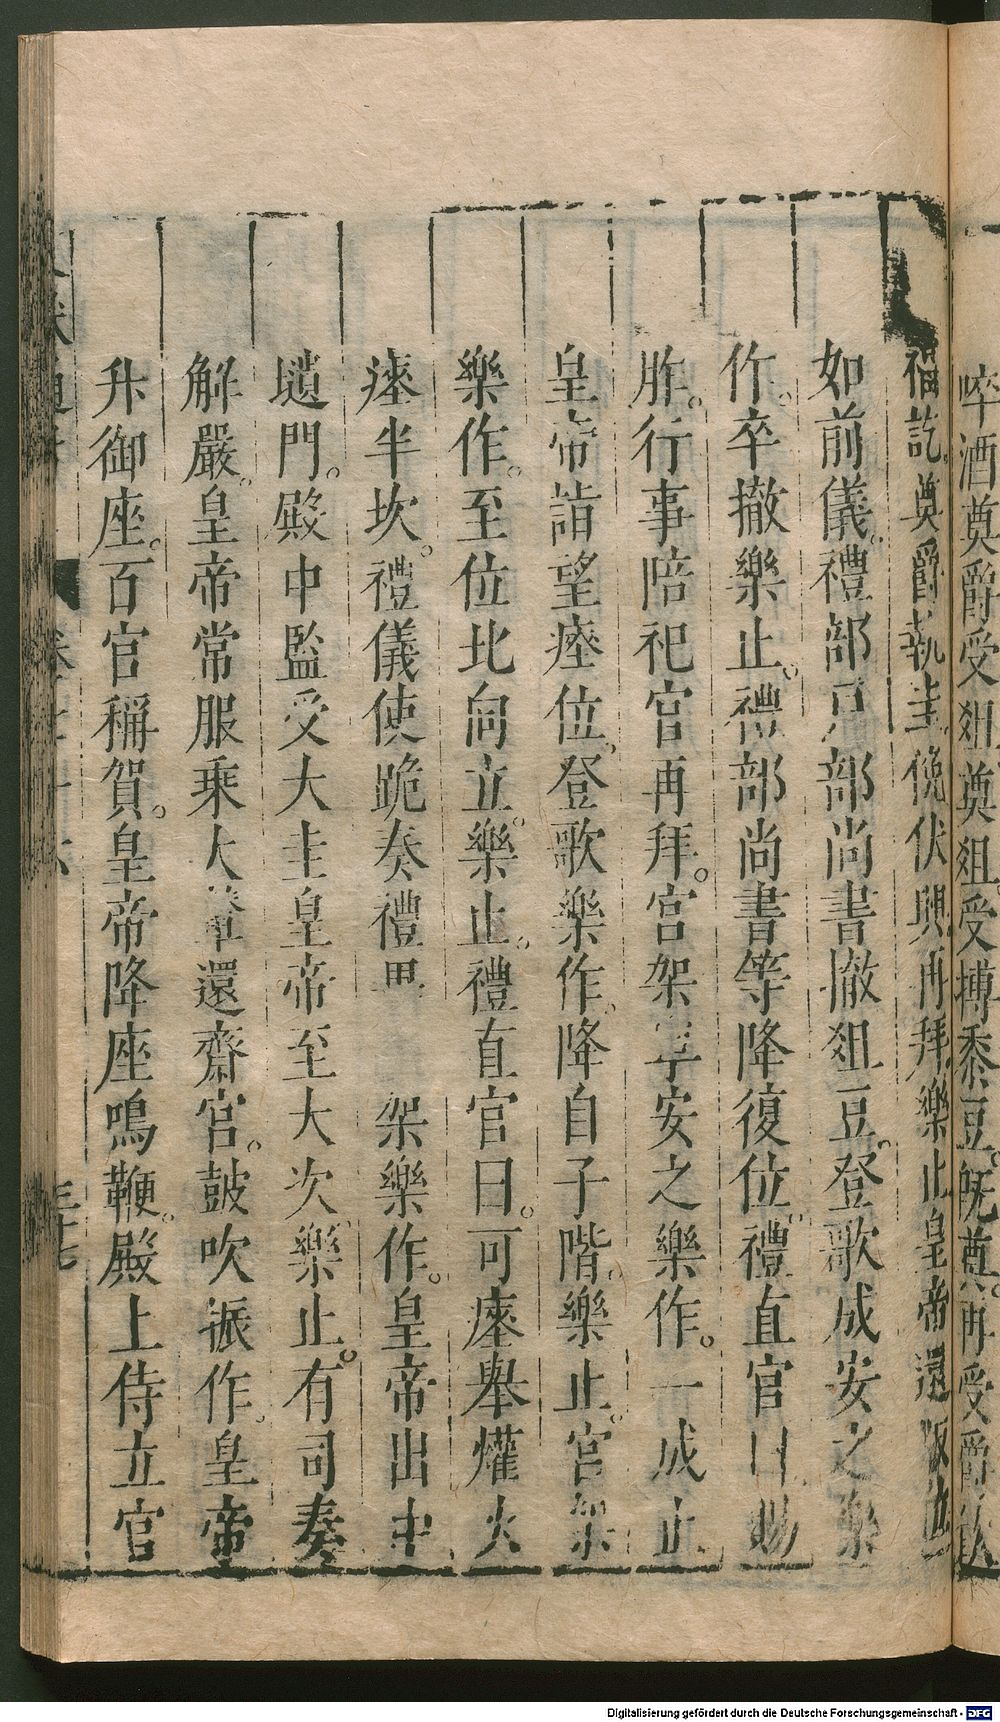 啐酒奠爵受俎奠俎受摶黍豆。既奠。再受爵飲
福訖奠爵執圭俛伏興再拜樂止皇帝還版位
如前儀。禮部戶部尚書撤俎豆。登歌成安之樂
作。卒撤樂止。禮部尚書等降復位禮直官曰賜
胙。行事陪祀官再拜。宮架寧安之樂作。一成止
皇帝詣望瘞位。登歌樂作。降自子階。樂止。宮架
樂作。至位北向立。樂止。禮直官曰。可瘞舉爟火
瘞半坎。禮儀使跪奏禮畢 架樂作。皇帝出中
壝門。殿中監受大圭皇帝至大次樂止。有司奏
解嚴。皇帝常服乘大輦還齋宮。鼓吹振作。皇帝
升御座。百官稱賀。皇帝降座鳴鞭。殿上侍立官
三十七
Digitalisierung gefördert durch die Deutsche Forschungsgemeinschaft - DFG